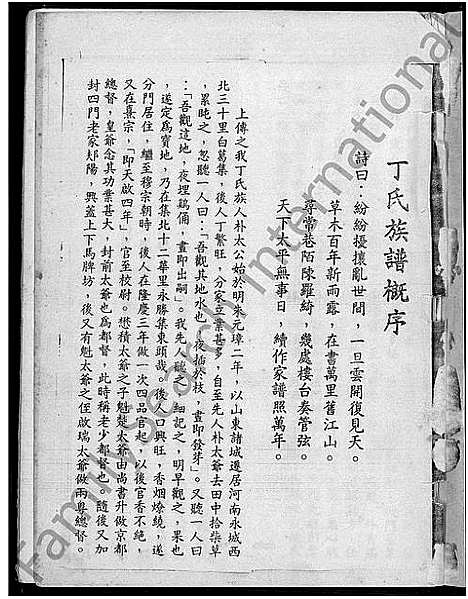 丁氏族譜概序
詩曰：紛紛擾攘亂世間，一旦雲開復見天。
草木百年新雨露，在書萬里舊江山。
尋常巷陌陳羅綺，幾處樓台奏管弦。
天下太平無事日，續作家譜照萬年。
上傳之我丁氏族人朴太公始於明朱元璋二年，以山東諸城遷居河南永城西
北三十里白葛集，後人丁繁旺，分家立業甚多，自至先人朴太爺去田中拾柴草
，累盹之，忽聽一人曰：「吾觀其地水也，夜插於枝，晝即發芽」。又聽一人曰
：「吾觀這地，夜埋鷄俑，晝即出嗣」。我先人聽之，細記之，明早觀之，果也
，遂定為寶地，乃在集北十二華里永勝集東頭哉。後人口興旺，香烟燎繞，遂
分門居住，繼至穆宗朝時，後人在隆慶三年做一次四品官起，以後官香不絕，
又在熹宗，「即天啟四年」，官至校尉。懋積太爺之子魁楚太爺由尚書升做京都
總督，皇爺念其功業甚大，封前太爺也為都督，此時稱老少都督也。隨後又加
封四門老家郏陽，興蓋上下馬牌坊，後又有魁太爺之侄啟瑞太爺做兩粵總督。
FamilySearch International